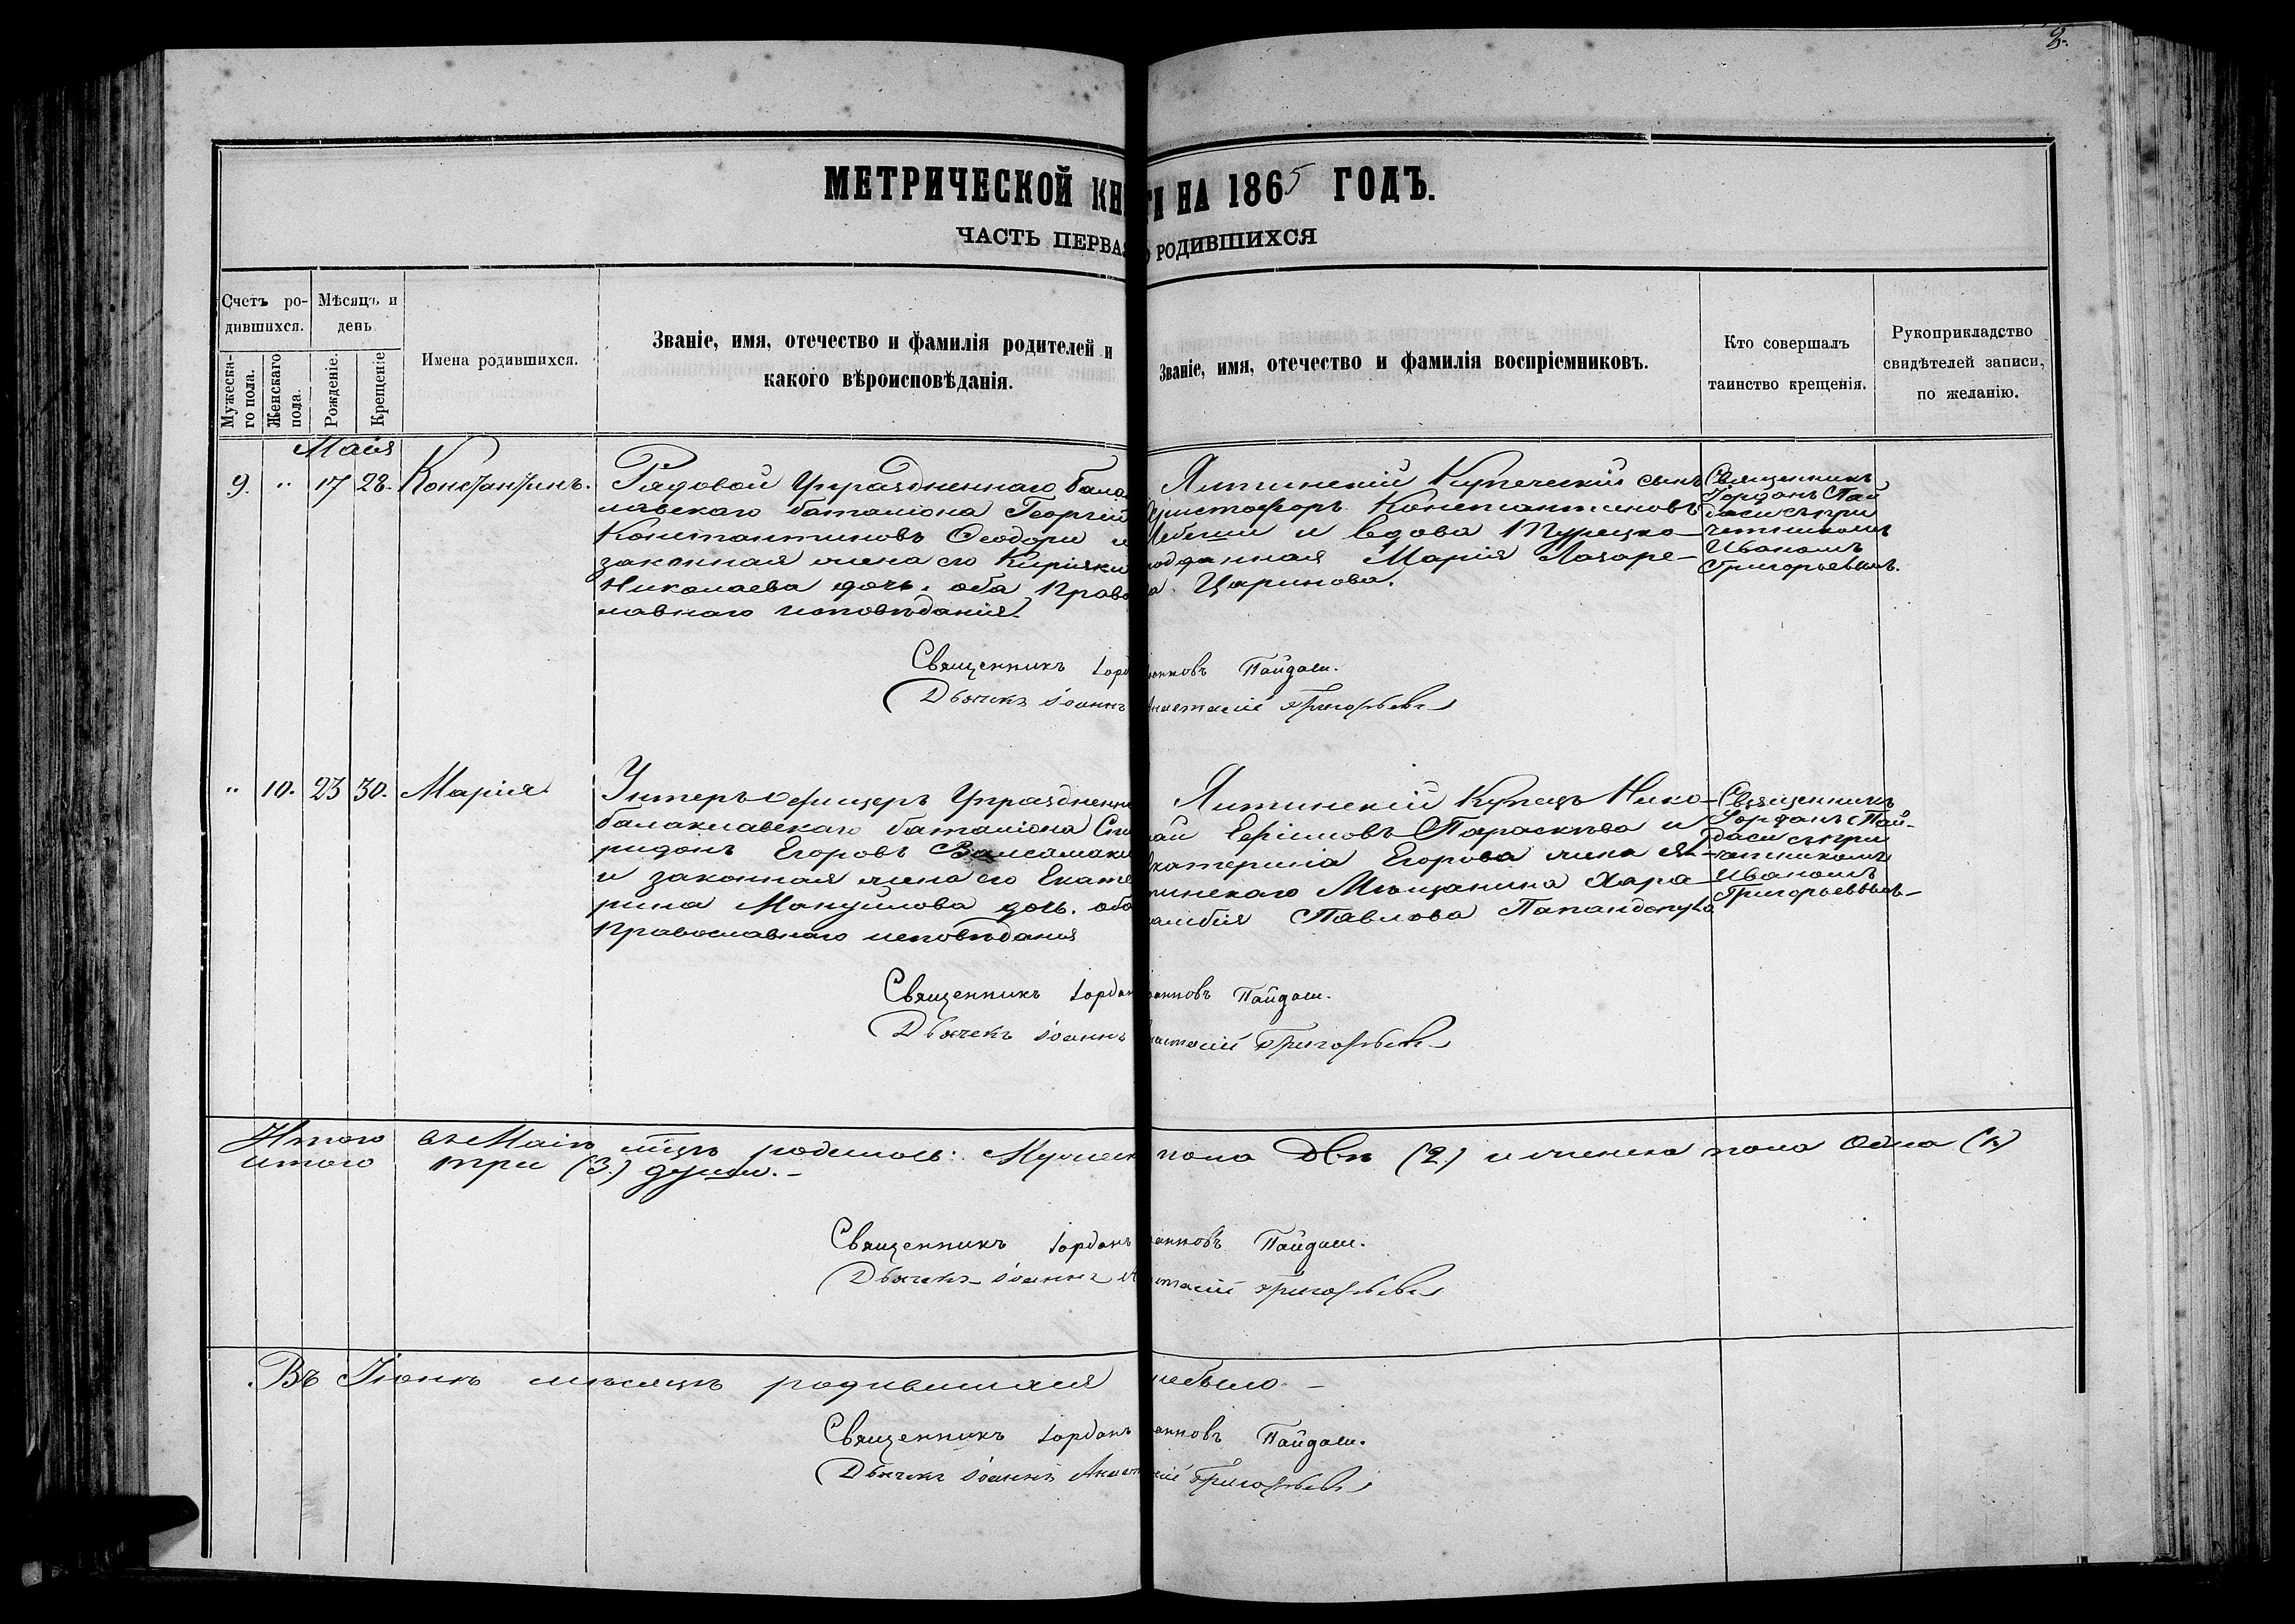 2.
МЕТРИЧЕСКОЙ КН ГИ НА 1865 ГОДЪ.
ЧАСТЬ ПЕРВАЯ О РОДИВШИХСЯ
Счетъ ро-
дившихся.
Мужеска-
го пола.
Женскаго
пола.
Мѣсяцъ и
день.
Рожденіе.
Крещеніе
Имена родившихся.
Званіе, имя, отечество и фамилія родителей и
какого вѣроисповѣданія.
Званіе, имя, отечество и фамилія воспріемниковъ.
Кто совершалъ
таинство крещенія.
Рукоприкладство
свидѣтелей записи,
по желанію.
Маія
9. " 17 28. Константинъ.
Рядовой Упраздненнаго бала
лавскаго баталіона Георгій
Константиновъ Ѳеодори и
законная жена его Киріяки
Николаева дочь. оба Право
лавнаго исповѣданія.
Ялтинскій Купеческій сынъ
Христофоръ Константиновъ
и вдова Турецко-
подданная Марія Лазаре-
а Царинова.
Священникъ
Іорданъ Пай
даси съ при
четникомъ
Иваномъ
Григорьевымъ.
Священникъ Іорд анновъ Пайдаси.
Дьячекъ Іоаннъ Анастасій Григорьевъ
" 10. 23 30. Марія
Унтеръ офицеръ Упраздненна
балаклавскаго баталіона Спи
ридонъ Егоровъ Валсамаки
и законная жена его Екате
рина Мануилова дочь. оба
Православнаго исповѣданія
Ялтинскій Купецъ Нико-
лай Ефимовъ Параскева и
катерина Егорова жена Ял-
тинскаго Мѣщанина Хара-
лампія Павлова Папандопуло
Священникъ
Іорданъ Пай-
даси съ при
четникомъ
Иваномъ
Григорьевымъ-
Священникъ Іордан анновъ Пайдаси.
Дьячекъ Іоаннъ настасій Григорьевъ
Итого въ Маіѣ мцѣ родилось: Мужеск пола Двѣ (2.) и женска пола Одна (1.)
итого три (3.) души.-
Священникъ Іорданъ анновъ Пайдаси.
Дьячекъ Іоаннъ Анастасій Григорьевъ
Въ Іюнѣ мѣсяцѣ родившихся небыло.-
Священникъ Іорданъ анновъ Пайдаси.
Дьячекъ Іоаннъ Анастасій Григорьевъ